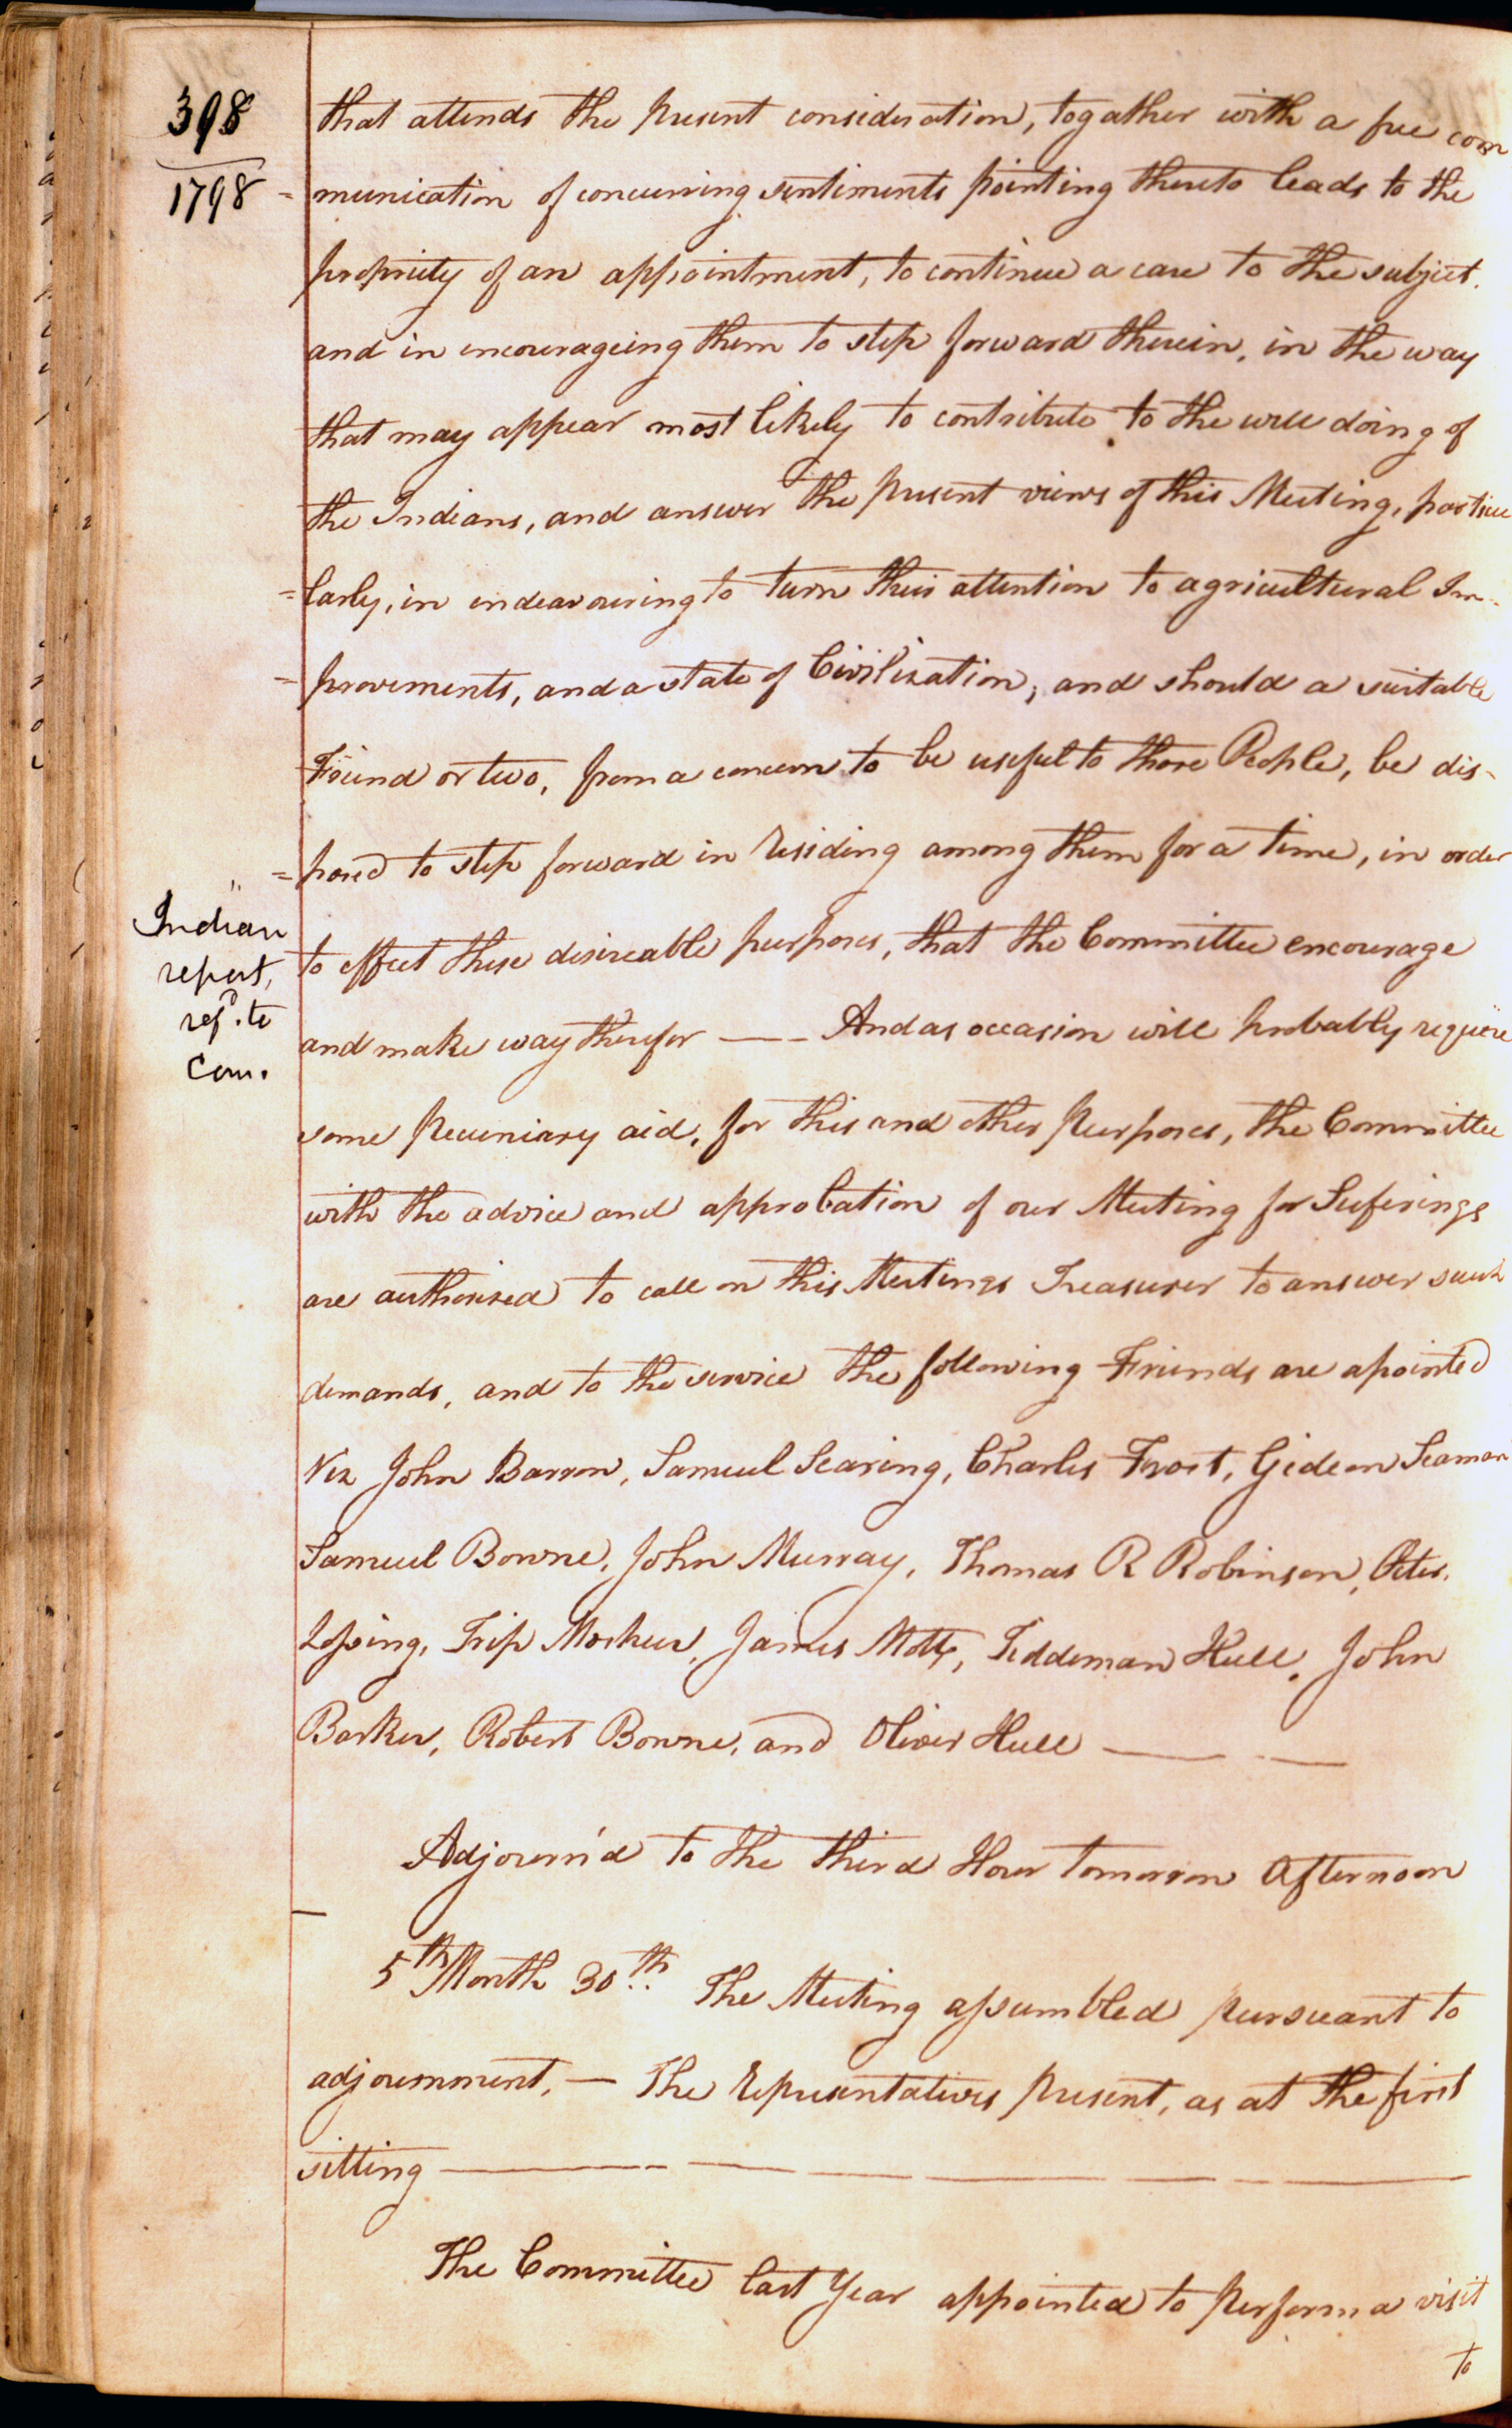 398
1798
that attends the present consideration, togather with a free com
=munication of concurring sentiments pointing thereto leads to the
propriety of an appointment, to continue a care to the subject.
and in encourageing them to step forward therein, in the way
that may appear most likely to contribute to the well doing of
the Indians, and answer the present views of this Meeting, particu
=larly, in endeavouring to turn their attention to agricultural Im-
=provements, and a state of Civilization, and should a suitable
Friend or two, from a concern to be useful to those People, be dis-
=posed to step forward in residing among them for a time, in order
to effect these desireable purposes, that the Committee encourage
and make way therefor —— And as occasion will probably require
some pecuniary aid, for this and other purposes, the Committee
with the advice and approbation of our Meeting for Suferings
are authorised to call on this Meetings Treasurer to answer such
demands, and to the service the following Friends are apointed
Viz John Barrow, Samuel Searing, Charles Frost, Gideon Seaman
Samuel Bowne, John Murray, Thomas R Robinson, Peter
Lossing, Trip Mosher, James Mott, Tiddeman Hull, John
Barker, Robert Bowne, and Oliver Hull ——
Adjourn'd to the third Hour tomorrow Afternoon
5th Month 30th The Meeting assembled pursuant to
adjournment, — The representatives present, as at the first
sitting ——
The Committee last Year appointed to perform a visit
to
Indian
report,
refd. to
Com.